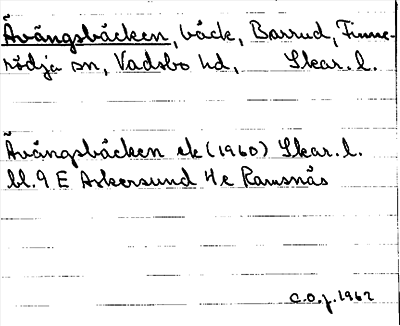 Åvängsbäcken, bäck, Barrud, Finne-
rödja sn, Vadsbo hd, Skar. l.
Åvängsbäcken ek (1960) Skar. l.
bl. 9 E Askersund 4e Ramsnäs
C.O.J. 1962